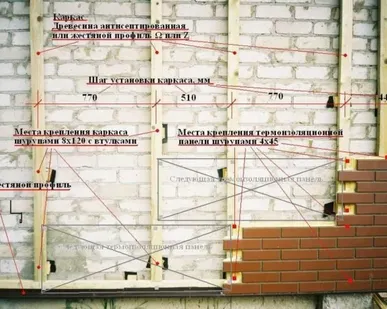 Каркас
Древесина антисептированная
или жестяной профиль Ω или Z
Шаг установки каркаса, мм
770
510
770
44
Места крепления каркаса
шурупами 8х120 с втулками
Места крепления термоизоляционной
панели шурупами 4х45
Следующая термоизоляционная панель
жестяной профиль
термоизоляционная панель